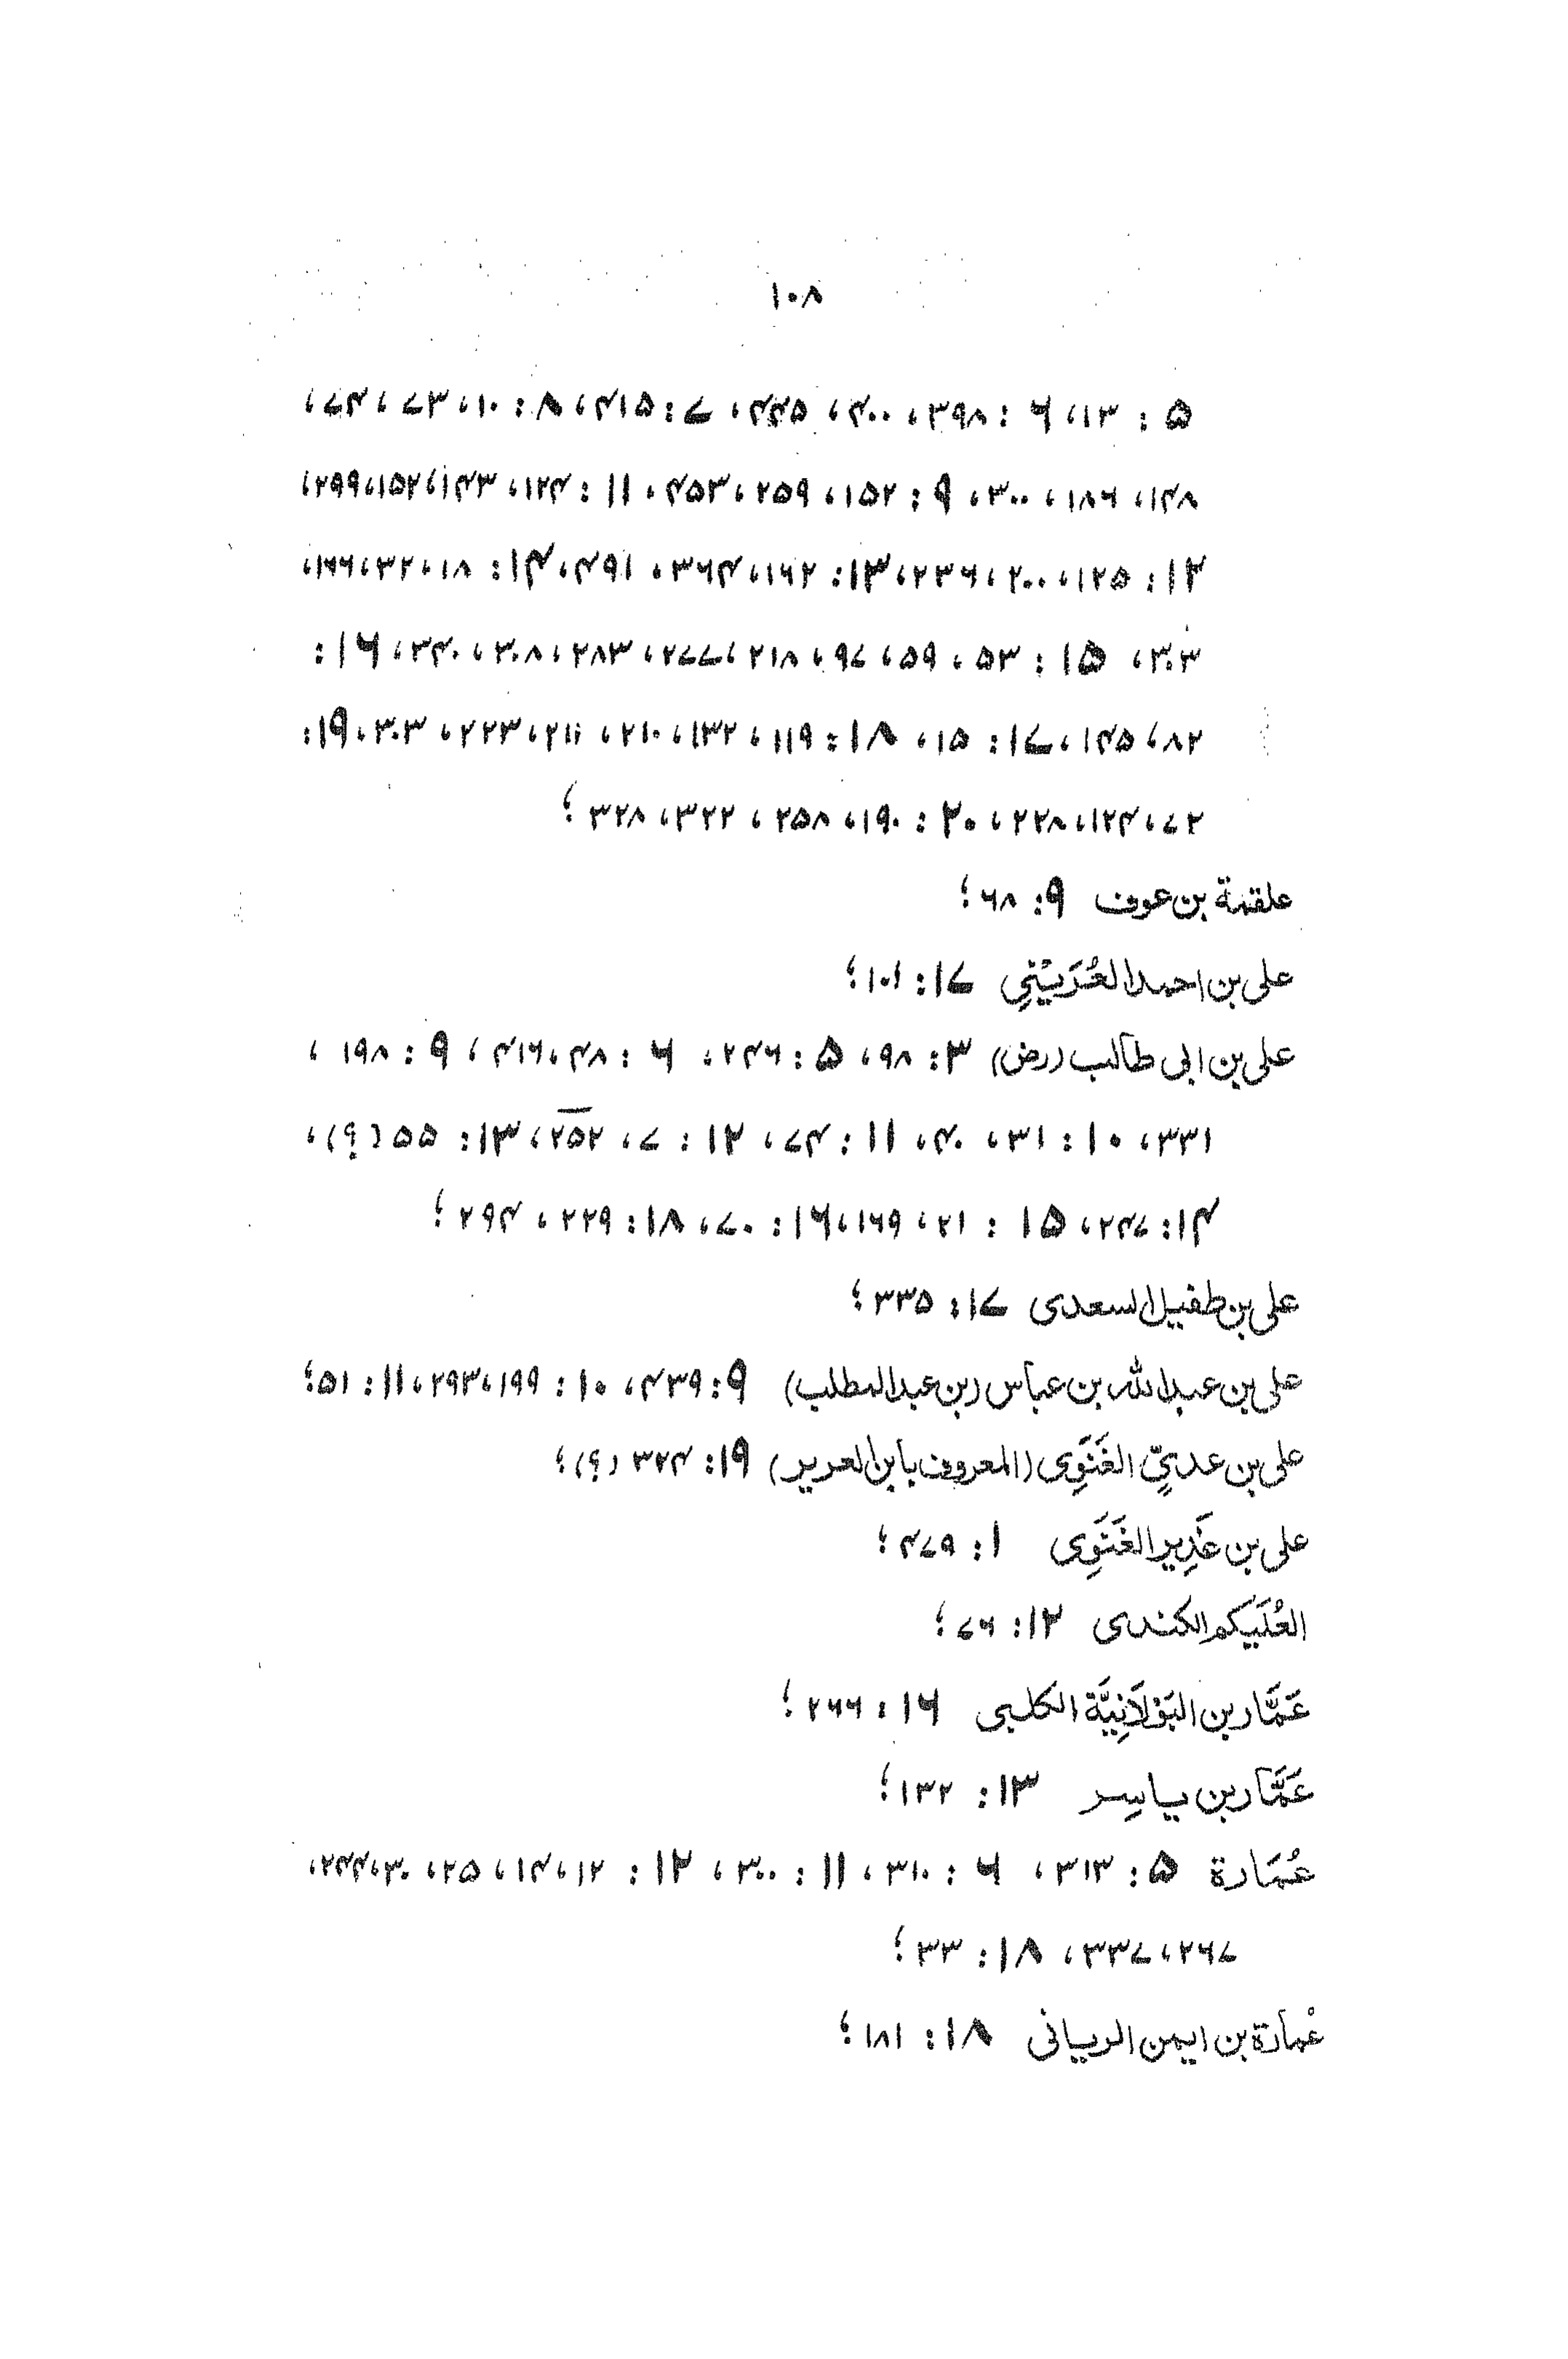 ۱۰۸
۵ : ۱۳، ۶ : ۳۹۸، ۴۰۰، ۴۴۵، ۷ : ۴۱۵، ۸ : ۱۰، ۷۳، ۷۴،
۱۴۸، ۱۸۶، ۳۰۰، ۹ : ۱۵۲، ۲۵۹، ۴۵۳، ۱۱ : ۱۲۴، ۱۴۳، ۱۵۲، ۲۹۹،
۱۲ : ۱۲۵، ۲۰۰، ۲۳۶، ۱۳ : ۱۶۲، ۳۶۴، ۴۹۱، ۱۴ : ۱۸، ۳۲، ۱۶۶،
۳۰۳، ۱۵ : ۵۳، ۵۹، ۹۷، ۲۱۸، ۲۷۷، ۲۸۳، ۳۰۸، ۳۴۰، ۱۶ :
۸۲، ۱۴۵، ۱۷ : ۱۵، ۱۸ : ۱۱۹، ۱۳۲، ۲۱۰، ۲۱۱، ۲۲۳، ۳۰۳، ۱۹ :
۷۲، ۱۲۴، ۲۲۸، ۲۰ : ۱۹۰، ۲۵۸، ۳۲۲، ۳۲۸؛
علقمة بن عوف ۹ : ۶۸؛
علی بن احمد العُرَیْنِي ۱۷ : ۱۰۱؛
علی بن ابی طالب (رض) ۳ : ۹۸، ۵ : ۲۴۶، ۶ : ۴۸، ۴۱۶، ۹ : ۱۹۸،
۳۳۱، ۱۰ : ۳۱، ۴۰، ۱۱ : ۷۴، ۱۲ : ۷، ۲۵۲، ۱۳ : ۵۵ (؟)،
۱۴ : ۲۴۷، ۱۵ : ۲۱، ۱۶۹، ۱۶ : ۷۰، ۱۸ : ۲۲۹، ۲۹۴؛
علی بن طفیل السعدی ۱۷ : ۳۳۵؛
علی بن عبد اللہ بن عباس (بن عبد المطلب) ۹ : ۴۳۹، ۱۰ : ۱۹۹، ۲۹۳، ۱۱ : ۵۱؛
علی بن عدیّ الغَنَوِی (المعروف بابن العریر) ۱۹ : ۳۲۴ (؟)؛
علی بن غَدِیر الغَنَوِی ۱ : ۴۷۹؛
العُلَیکم الکندی ۱۲ : ۷۶؛
عَمَّار بن البَوْلَانِیَّة الکلبی ۱۶ : ۲۶۶؛
عَمَّار بن یاسِر ۱۳ : ۱۳۲؛
عُمَارة ۵ : ۳۱۳، ۶ : ۳۱۰، ۱۱ : ۳۰۰، ۱۲ : ۱۲، ۱۴، ۲۵، ۳۰، ۲۴۴،
۲۶۷، ۳۳۷، ۱۸ : ۳۳؛
عُمارة بن ایمن الریانی ۱۸ : ۱۸۱؛